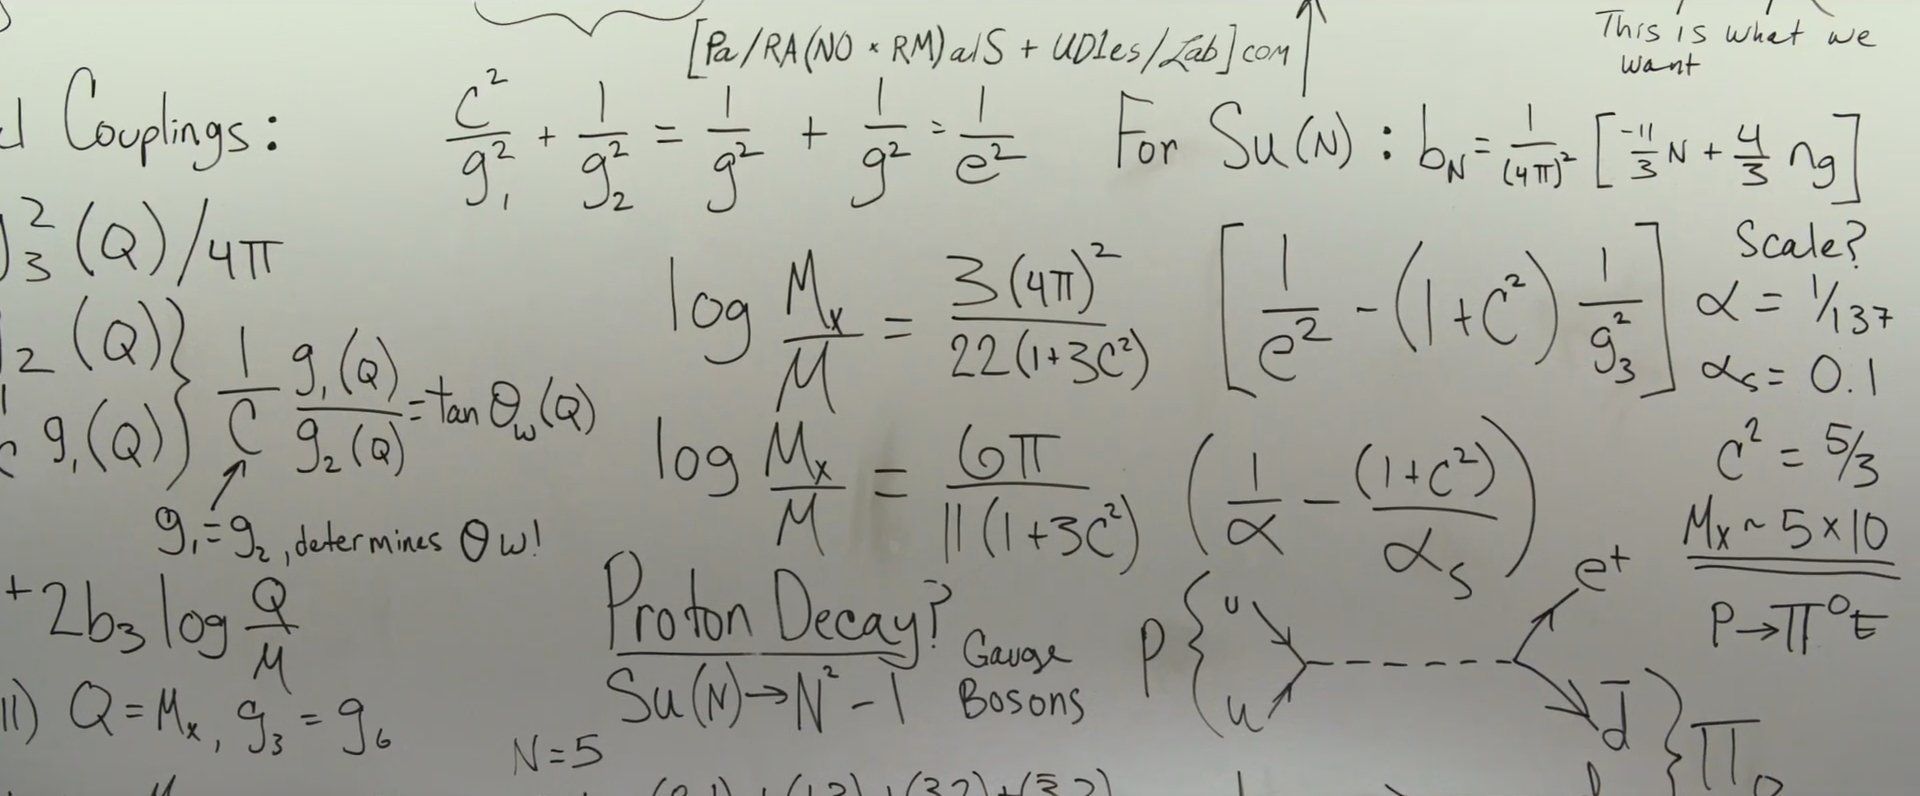 This is what we
want
[Pa/RA(NO × RM)alS + UD1es/Lab]com
Couplings:
C²/g₁² + 1/g₂² = 1/g² + 1/g² = 1/e²
For Su(N) : b_N = 1/(4π)² [-11/3 N + 4/3 ng]
g₃²(Q)/4π
₂(Q)}
g₁(Q)} 1/C g₁(Q)/g₂(Q) = tan θ_w(Q)
g₁=g₂, determines θw!
log Mx/M = 3(4π)²/22(1+3C²) [1/e² - (1+C²) 1/g₃²]
log Mx/M = 6π/11(1+3C²) (1/α - (1+C²)/αs)
Scale?
α = 1/137
αs = 0.1
C² = 5/3
Mx ~ 5×10
P→π⁰e
+2b₃ log Q/M
11) Q = Mx, g₃ = g₆
Proton Decay?
Su(N)→N²-1
Gauge
Bosons
N=5
P { u u
e⁺
d̄ } π₀